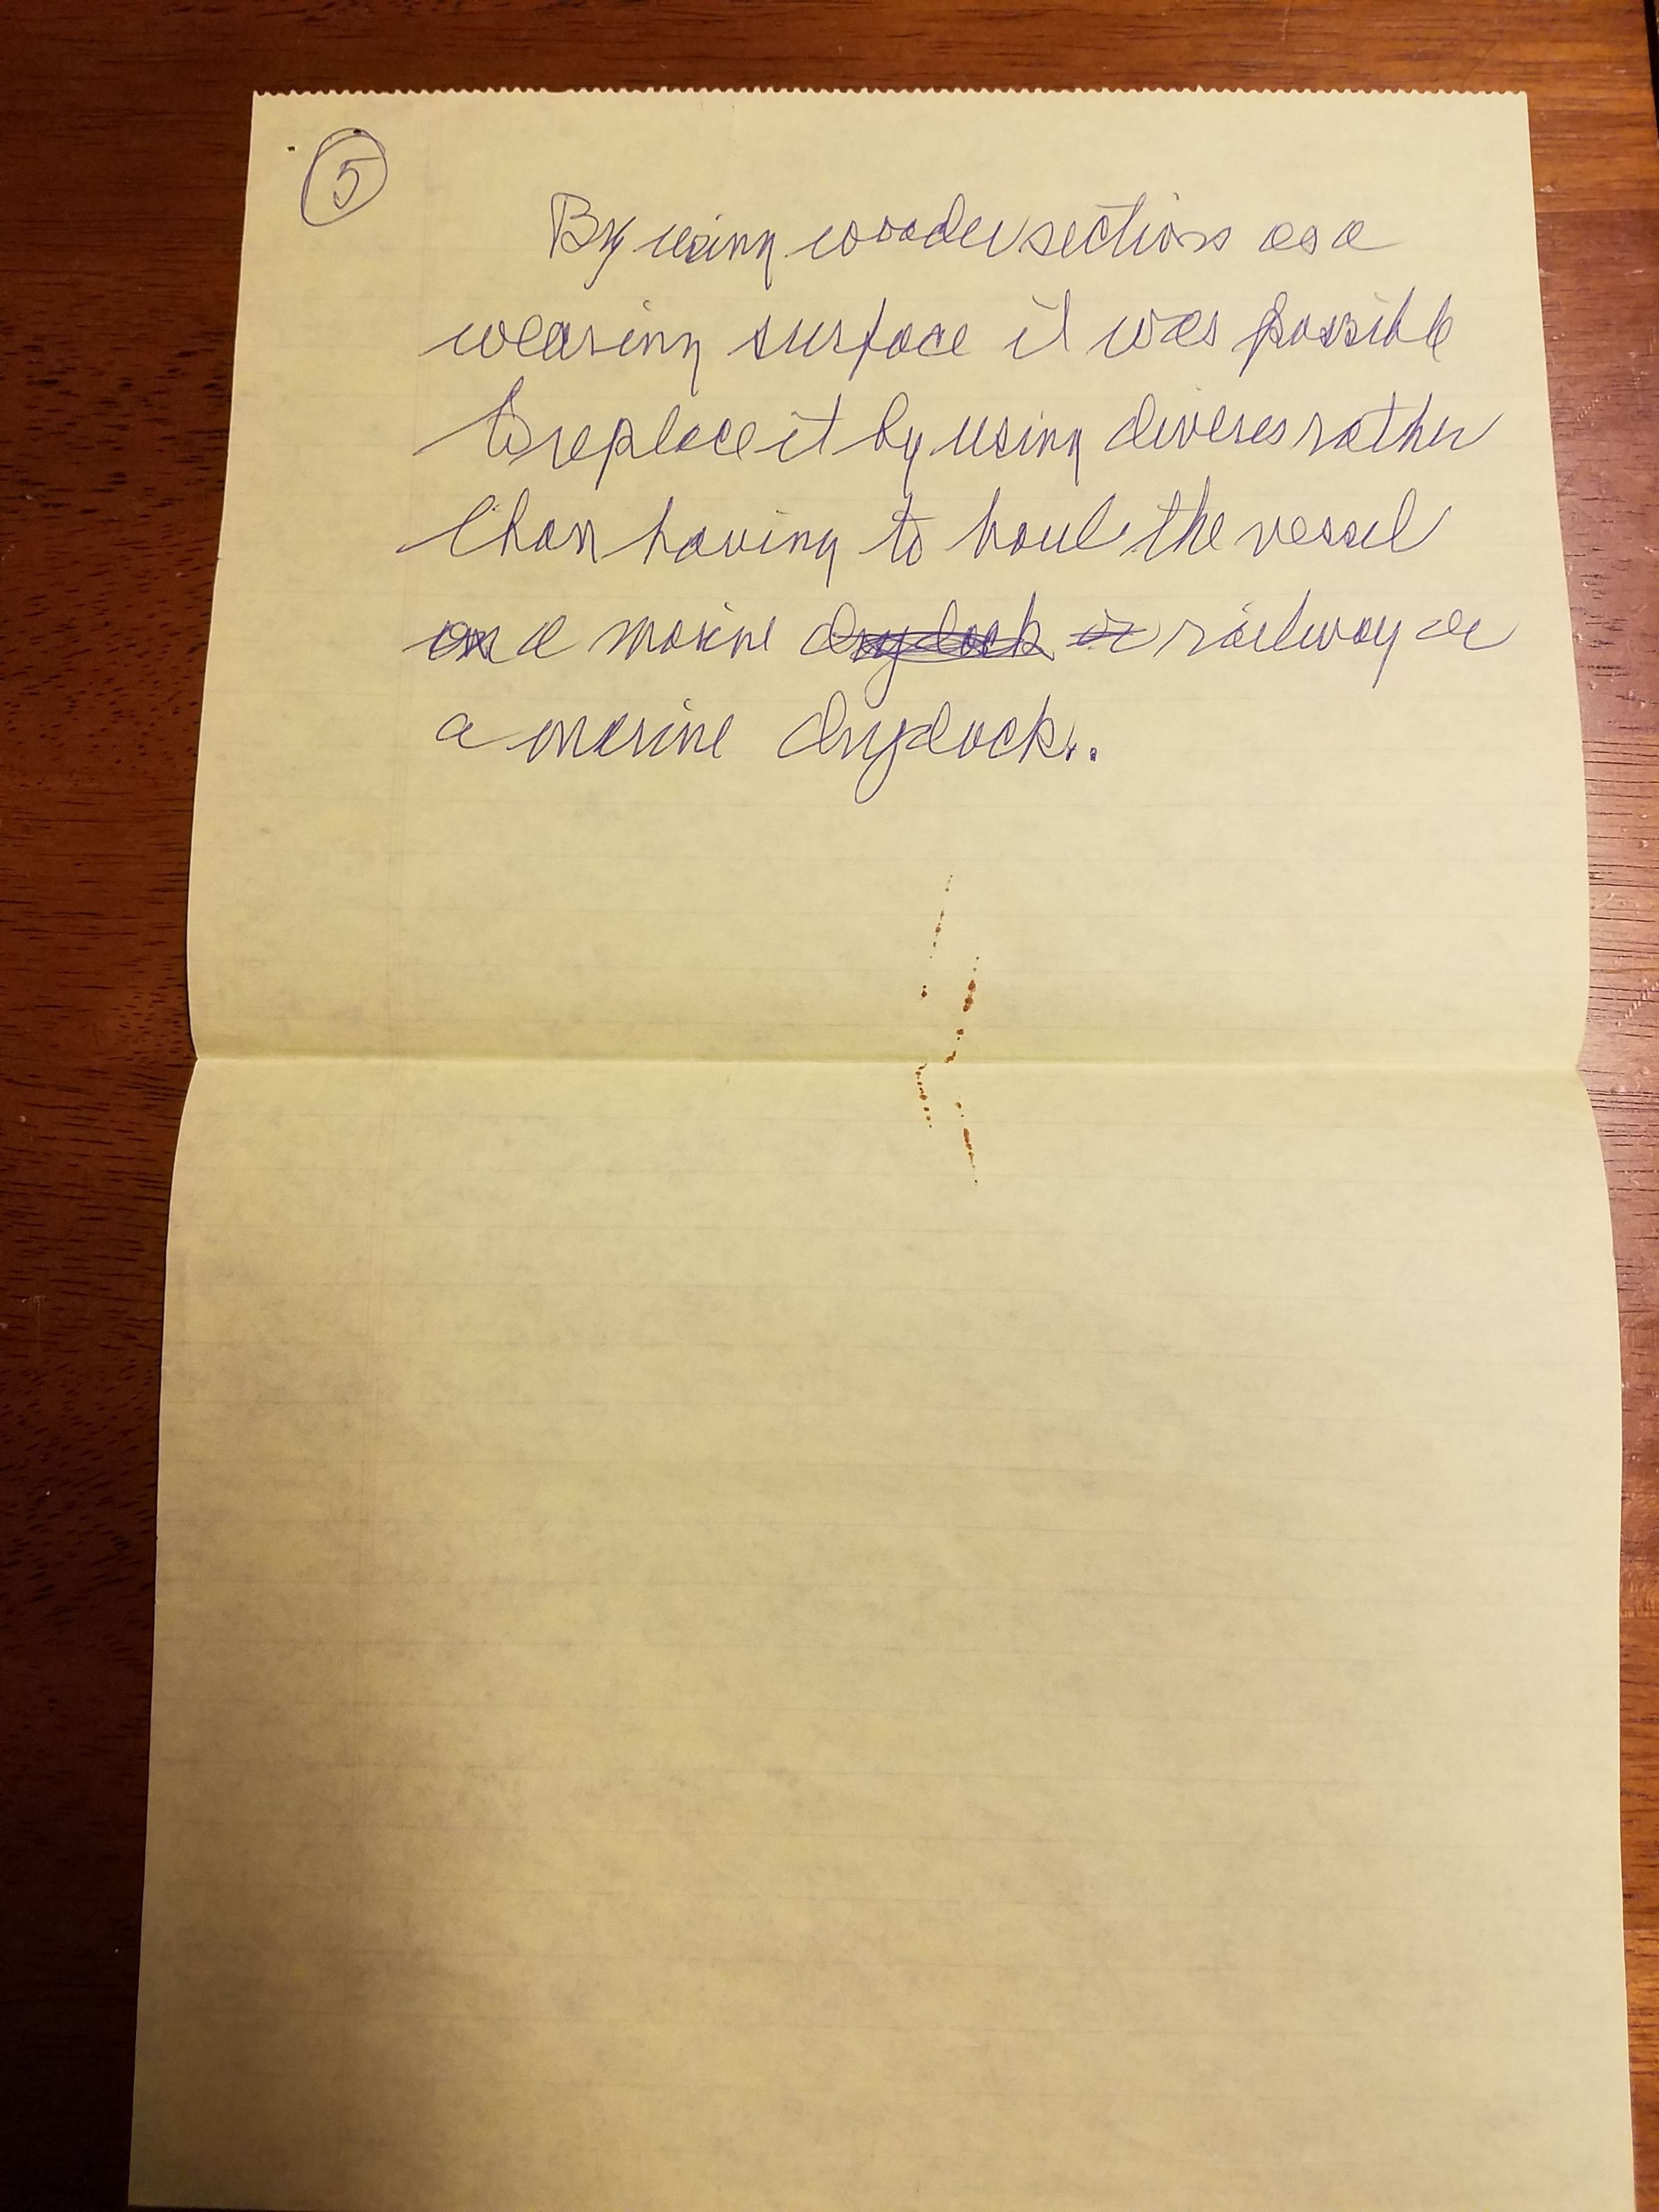 5
By using wooden sections as a
wearing surface it was possible
to replace it by using divers rather
than having to haul the vessel
on a marine drydock or railway or
a marine drydock.